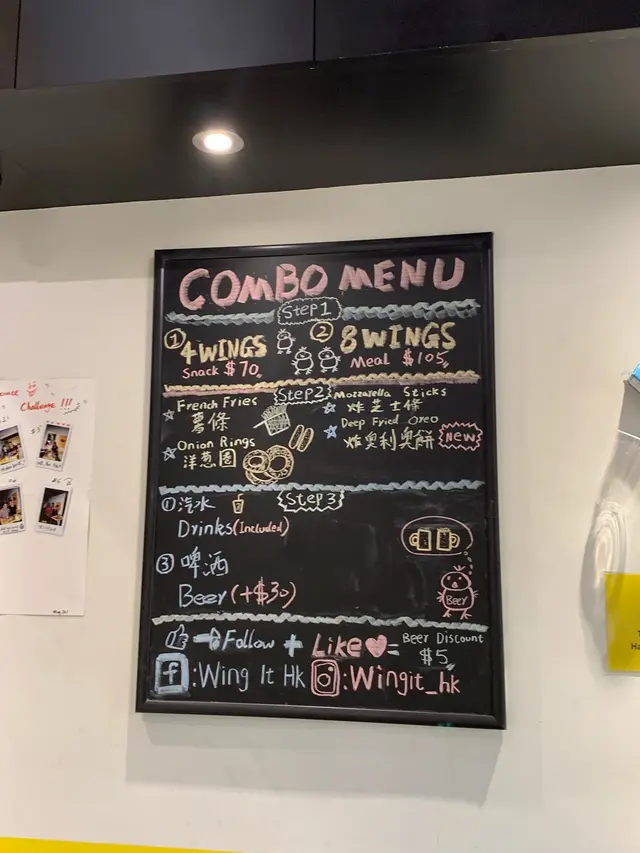 COMBO MENU
Step 1
① 4 WINGS
Snack $70
② 8 WINGS
Meal $105
Step 2
French Fries
薯條
Onion Rings
洋葱圈
Mozzarella Sticks
炸芝士條
Deep Fried Oreo
炸奧利奧餅 New
Step 3
① 汽水
Drinks (Included)
③ 啤酒
Beer (+$30)
Beer
Follow + Like = Beer Discount
$5
f : Wing It Hk : Wingit_hk
Challenge !!!